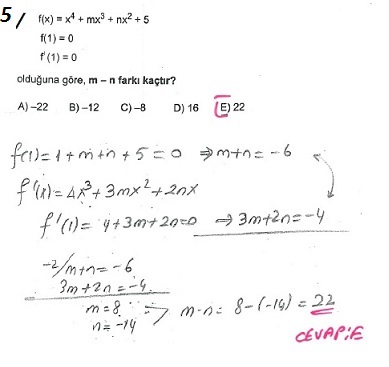 5/ f(x) = x⁴ + mx³ + nx² + 5
f(1) = 0
f'(1) = 0
olduğuna göre, m – n farkı kaçtır?
A) –22 B) –12 C) –8 D) 16 E) 22
f(1) = 1 + m + n + 5 = 0 ⇒ m+n = -6
f'(x) = 4x³ + 3mx² + 2nx
f'(1) = 4 + 3m + 2n = 0 ⇒ 3m+2n = -4
-2/ m+n = -6
3m + 2n = -4
m = 8
n = -14
m-n = 8-(-14) = 22
CEVAP: E